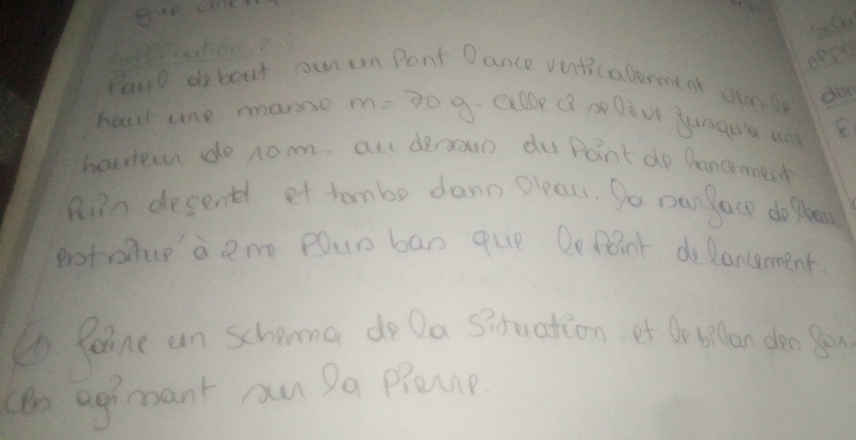 Paul debout sur un Pont lance verticalement vers le
haut une masse m = 70 g. elle ci s'élève jusqu'à une
hauteur de 10 m. au dessus du Point de lancement
Puis desentd et tombe dans l'eau. la surface de l'eau
est située à 2m Plus bas que le Point de lancement.
① faire un schema de la Situation et le bilan des for-
ces agissant sur la Pierre.